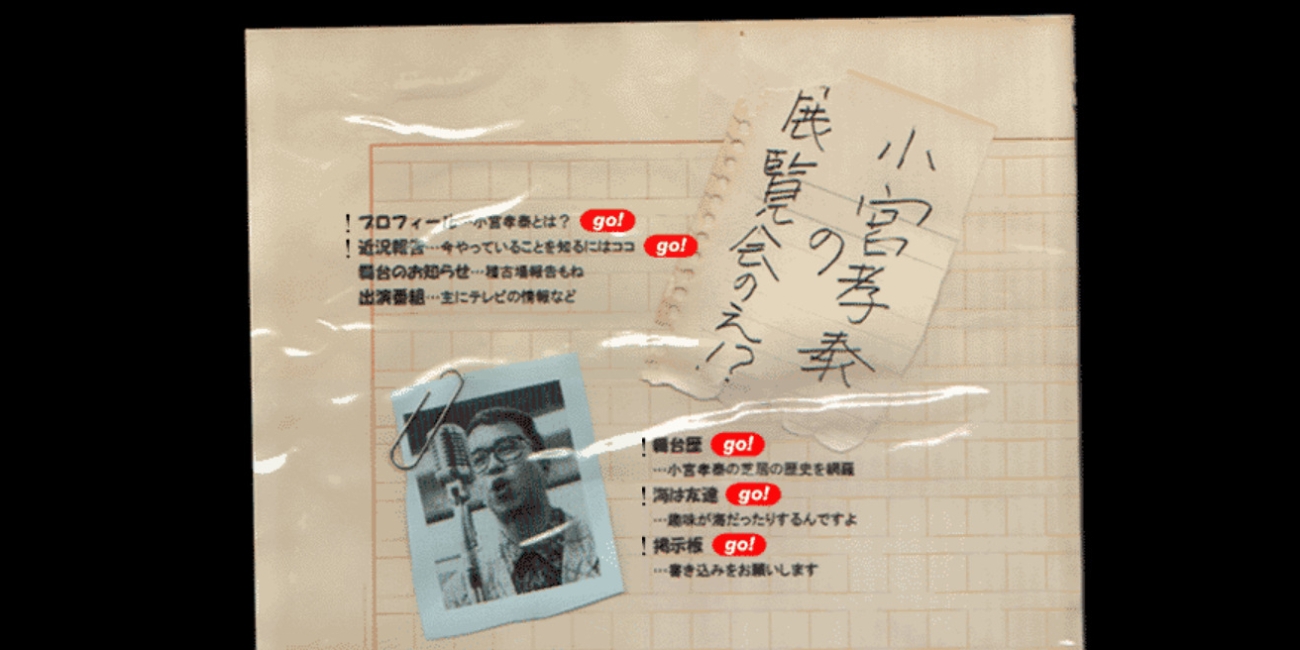 小宮孝泰
の
展覧会のえ!?
! プロフィール…小宮孝泰とは？ go!
! 近況報告…今やっていることを知るにはココ go!
舞台のお知らせ…稽古場報告もね
出演番組…主にテレビの情報など
! 舞台歴 go!
…小宮孝泰の芝居の歴史を網羅
! 海は友達 go!
…趣味が海だったりするんですよ
! 掲示板 go!
…書き込みをお願いします